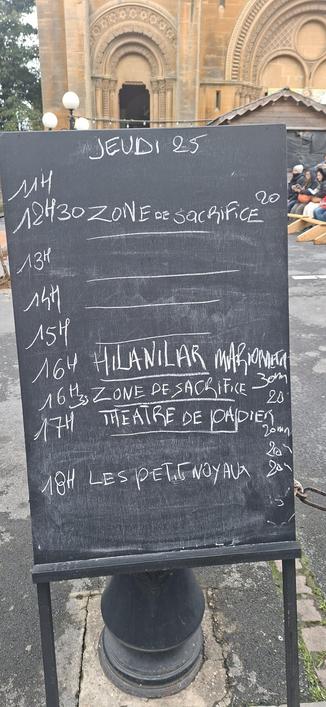 JEUDI 25
11H
12H30 ZONE DE SACRIFICE 20
13H
14H
15H
16H HILANILAR MARIONETA 30m
16H30 ZONE DE SACRIFICE 20
17H THEATRE DE PAPIER 20mn
20
18H LES PETITS NOYAUX 20